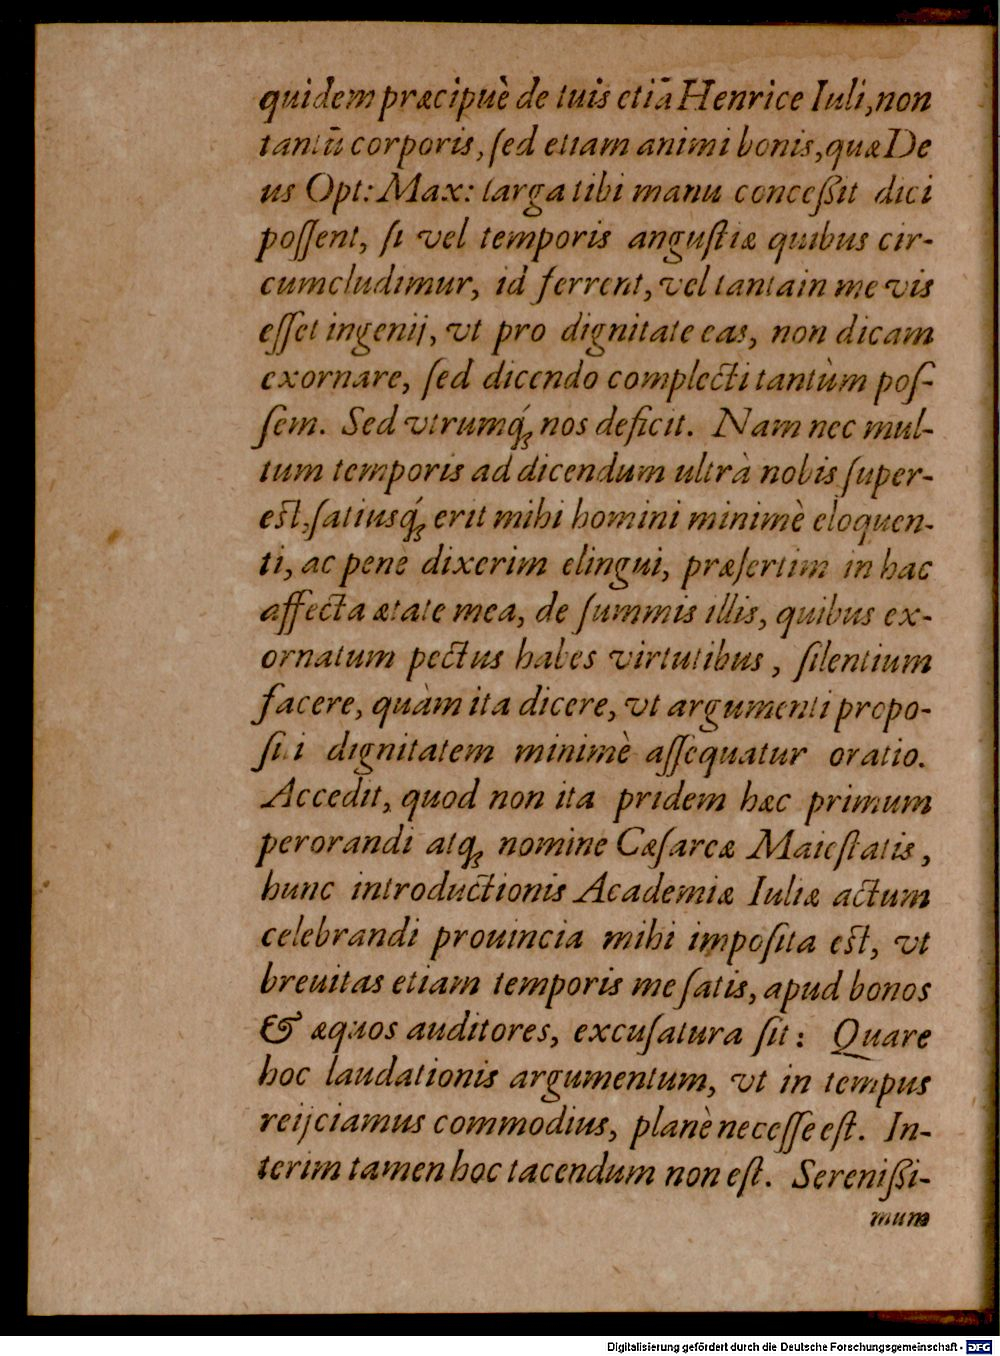 quidem præcipuè de tuis etiā Henrice Iuli, non
tantū corporis, ſed etiam animi bonis, quæ De
us Opt: Max: larga tibi manu conceßit dici
poſſent, ſi vel temporis anguſtiæ quibus cir-
cumcludimur, id ferrent, vel tanta in me vis
eſſet ingenij, vt pro dignitate eas, non dicam
exornare, ſed dicendo complecti tantùm poſ-
ſem. Sed vtrumq́ꝫ nos deficit. Nam nec mul-
tum temporis ad dicendum ultrà nobis ſuper-
eſt, ſatiusq́ꝫ erit mihi homini minimè eloquen-
ti, ac pene dixerim elingui, præſertim in hac
affecta ætate mea, de ſummis illis, quibus ex-
ornatum pectus habes virtutibus, ſilentium
facere, quàm ita dicere, vt argumenti propo-
ſiti dignitatem minimè aſſequatur oratio.
Accedit, quod non ita pridem hæc primum
perorandi atqꝫ nomine Cæſareæ Maieſtatis,
hunc introductionis Academiæ Iuliæ actum
celebrandi prouincia mihi impoſita eſt, vt
breuitas etiam temporis me ſatis, apud bonos
& æquos auditores, excuſatura ſit: Quare
hoc laudationis argumentum, vt in tempus
reijciamus commodius, planè neceſſe eſt. In-
terim tamen hoc tacendum non eſt. Serenißi-
mum
Digitalisierung gefördert durch die Deutsche Forschungsgemeinschaft - DFG